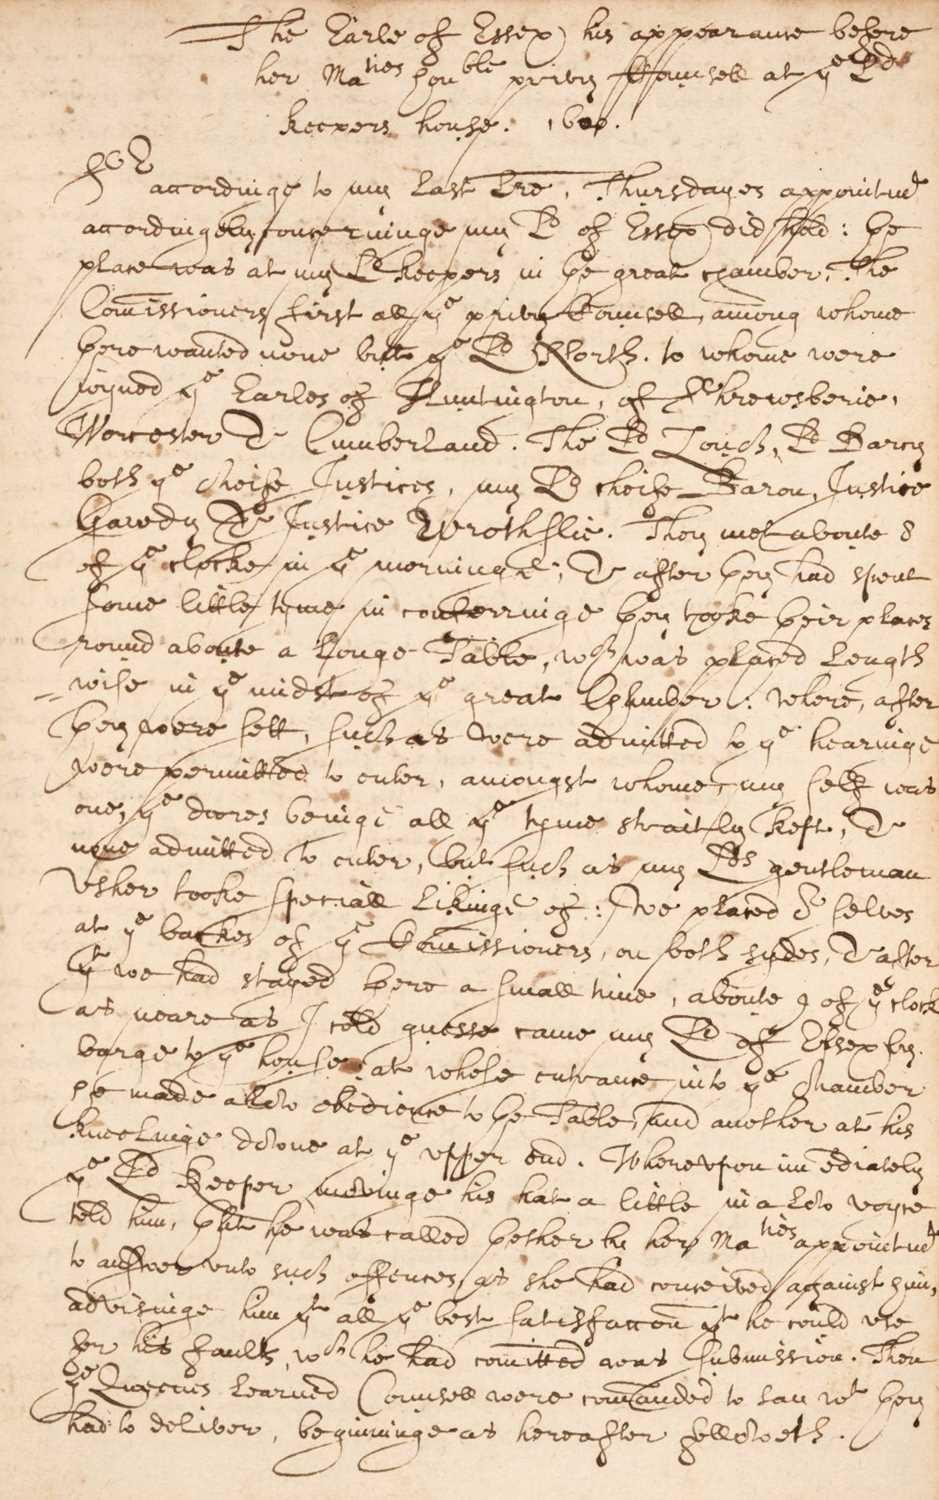 The Earle of Essex his appearaunce before
her Maties honble privy Counsell at ye Ld
Keepers house. 1600.
accordinge to my last Lre, Thursdayes appointmt
accordingely concerninge my Ld of Essex did hold: the
place was at my Ld Keepers in the great chamber, The
Comissioners first all ye privy Counsell, among whome
there wanted none but ye Ld North. to whome were
joyned ye Earles of Huntington, of Shrewsberie,
Worcester & Cumberland. The Ld Zouch, Ld Darcy
both ye cheife Justices, my Ld cheife Baron, Justice
Gawdy & Justice Wal
of ye clocke in ye morninge; & after they had spent
some little tyme in conferringe they tooke their places
round aboute a longe Table, wch was placed Length
wise in ye midst of ye great Chamber: where, after
they were sett, such as were admitted to ye hearinge
were permitted to enter, amongst whome my self was
one, ye doores beinge all ye tyme straitly kept, &
none admitted to enter, but such as my Lds gentleman
Vsher tooke speciall likinge of: we placed or selves
at ye backes of ye Comissioners, on both sydes, & after
yt we had stayed there a small time, aboute 9 of ye clock
as neare as I cold guesse came my Ld of Essex by
barge to ye house at whose entrance into ye chamber
he made allow obedience to the Table, and another at his
kneelinge downe at ye vpper end. Wherevpon imediately
ye Ld Keeper movinge his hat a little in a low voyce
told him, that he was called thether by her Maties appointmt
to answer vnto such offences as she had conceived against him,
advisinge him yt all ye best satisfaccon yt he could vse
for his faults, wch he had comitted was submission. Then
ye Queenes Learned Counsell were comanded to say wt they
had to deliver, beginninge as hereafter followeth.